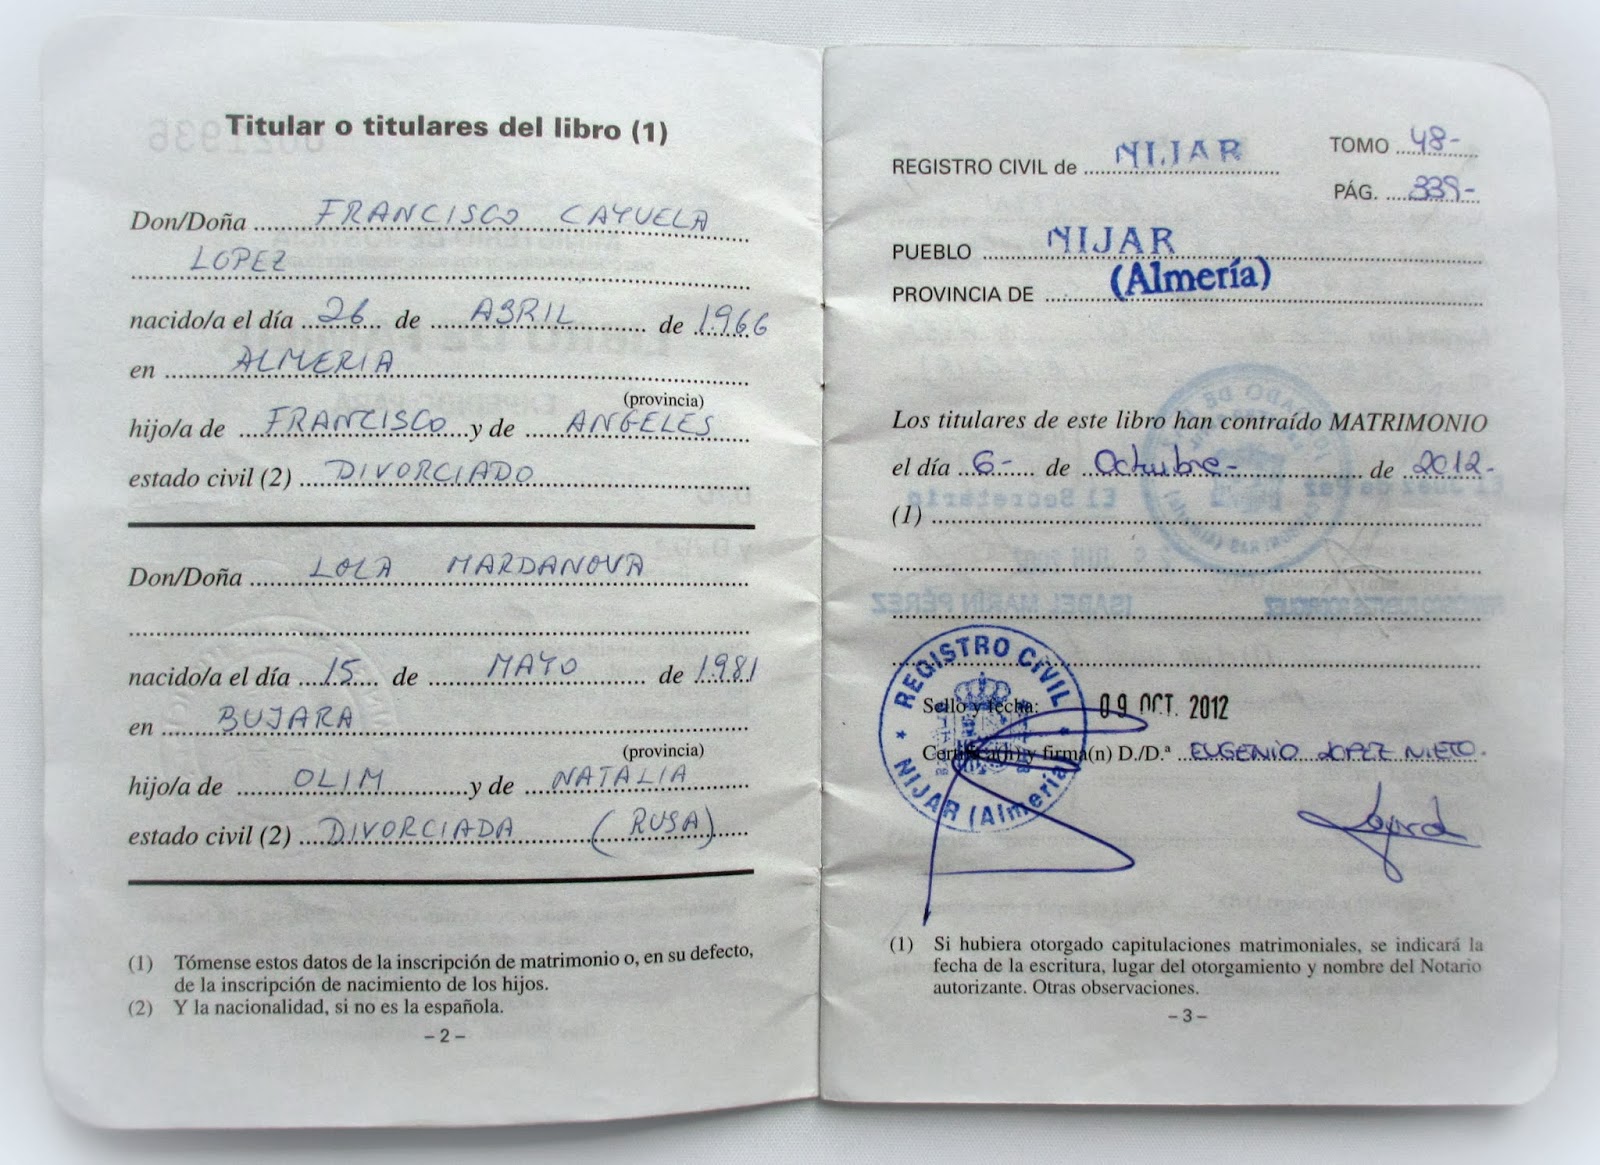 Titular o titulares del libro (1)
Don/Doña FRANCISCO CAYUELA
LOPEZ
nacido/a el día 26 de ABRIL de 1966
en ALMERIA
(provincia)
hijo/a de FRANCISCO y de ANGELES
estado civil (2) DIVORCIADO
Don/Doña LOLA MARDANOVA
nacido/a el día 15 de MAYO de 1981
en BUJARA
(provincia)
hijo/a de OLIM y de NATALIA
estado civil (2) DIVORCIADA (RUSA)
(1) Tómense estos datos de la inscripción de matrimonio o, en su defecto,
de la inscripción de nacimiento de los hijos.
(2) Y la nacionalidad, si no es la española.
– 2 –
REGISTRO CIVIL de NIJAR
TOMO 48-
PÁG. 339-
PUEBLO NIJAR
PROVINCIA DE (Almería)
Los titulares de este libro han contraído MATRIMONIO
el día 6- de Octubre- de 2012-
(1)
REGISTRO CIVIL
* NIJAR (Almería) *
Sello y fecha: 09 OCT. 2012
Certifica(n) y firma(n) D./D.ª EUGENIO LOPEZ NIETO.
(1) Si hubiera otorgado capitulaciones matrimoniales, se indicará la
fecha de la escritura, lugar del otorgamiento y nombre del Notario
autorizante. Otras observaciones.
– 3 –